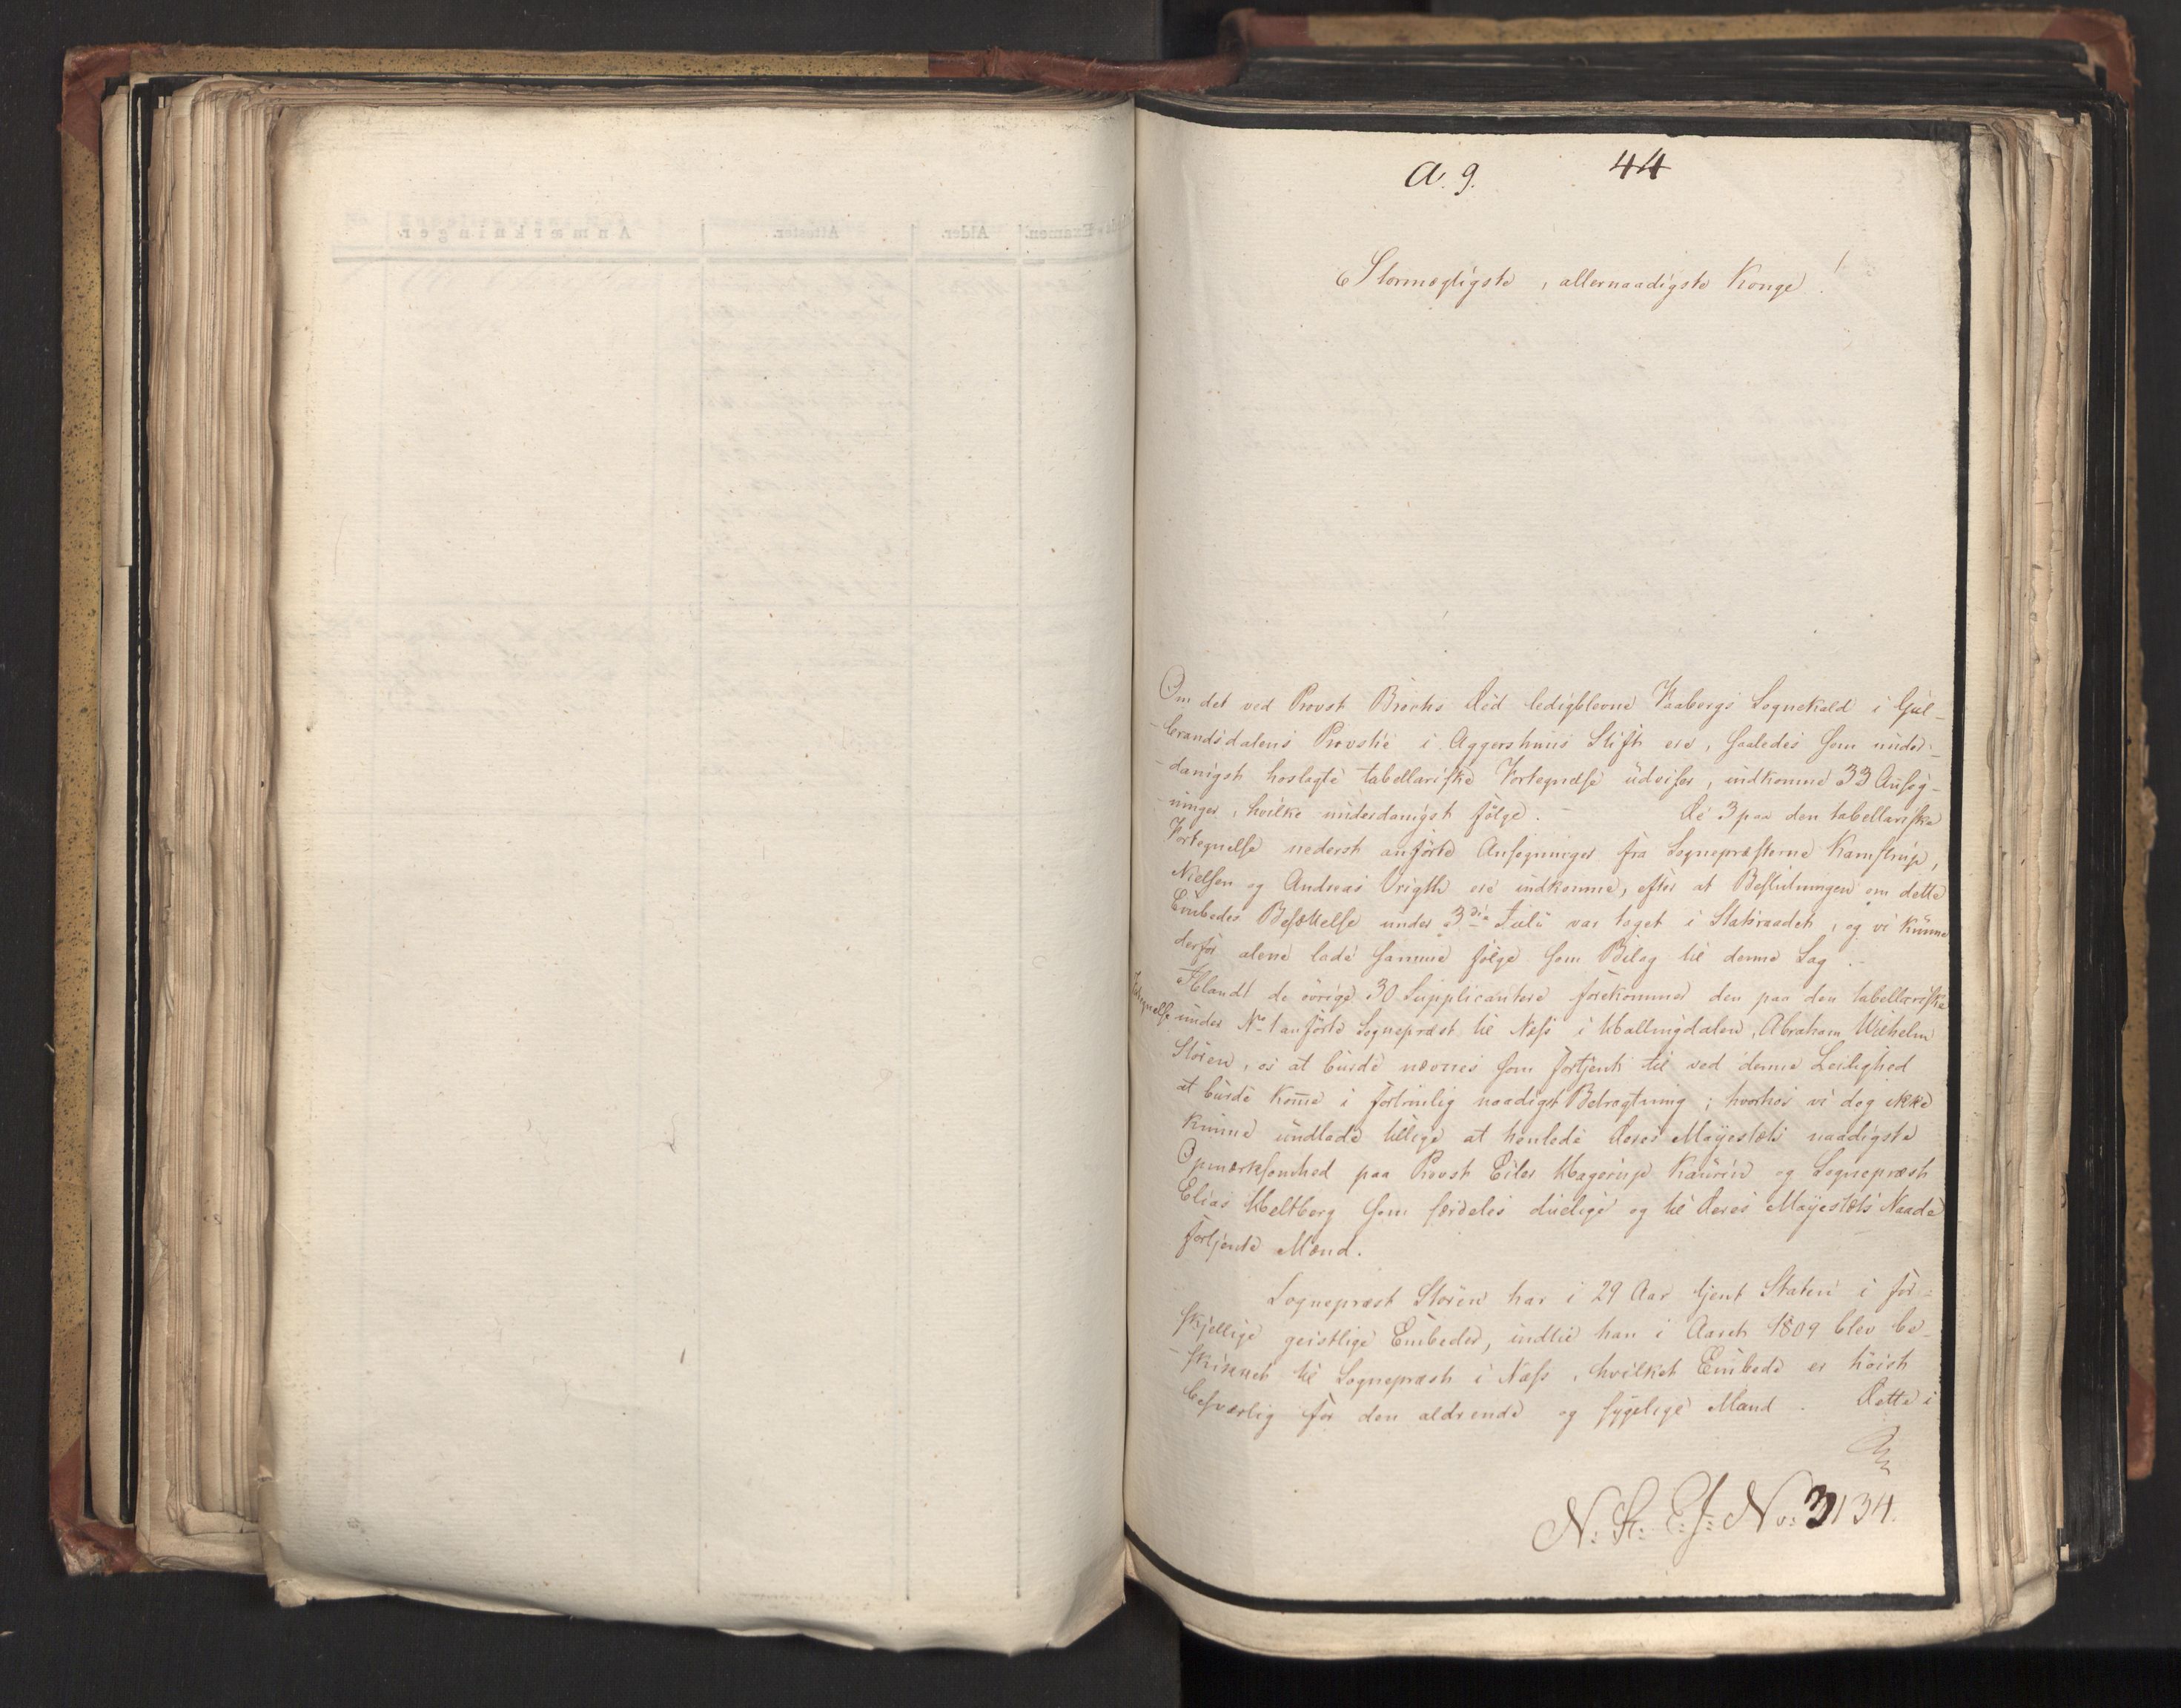 a. 9.
44
Stormægtigste, allernaadigste Konge!
Om det ved Provst Brochs Död ledigblevne Faabergs Sognekald i Gul-
brandsdalens Provstie i Aggershuus Stift ere, saaledes som under-
danigst hoslagte tabellariske Fortegnelse udviser, indkomne 33 Ansög-
ninger, hvilke underdanigst fölge. - De 3 paa den tabellariske
Fortegnelse nederst anförte Ansögninger fra Sognepræsterne Kamstrup,
Nielsen og Andreas Vrigth ere indkomne, efter at Beslutningen om dette
Embedes Besættelse under 3die Juli var taget i Statsraadet, og vi kunne
derfor alene lade samme fölge som Bilag til denne Sag.-
Iblandt de övrige 30 Supplicantere forekommer den paa den tabellariske
Fortegnelse under No 1 anförte Sognepræst til Næss i Hallingdalen, Abraham Wilhelm
Stören, os at burde nævnes som fortjent til ved denne Leilighed
at burde komme i fortrinlig naadigst Betragtning; hvorhos vi dog ikke
kunne undlade tillige at henlede Deres Majestæts naadigste
Opmærksomhed paa Provst Eiler Hagerup Kaurin og Sognepræst
Elias Heltberg som særdeles duelige og til Deres Majestæts Naade
fortjente Mænd.
Sognepræst Stören har i 29 Aar tjent Staten i for-
skjellige geistlige Embeder, indtil han i Aaret 1809 blev be-
skikket til Sognepræst i Næss, hvilket Embede er höist
besværlig for den aldrende og sygelige Mand. Dette i
N: St: E: J: No: 3134.
Anmærkninger.
Attester.
Alder.
Examen.